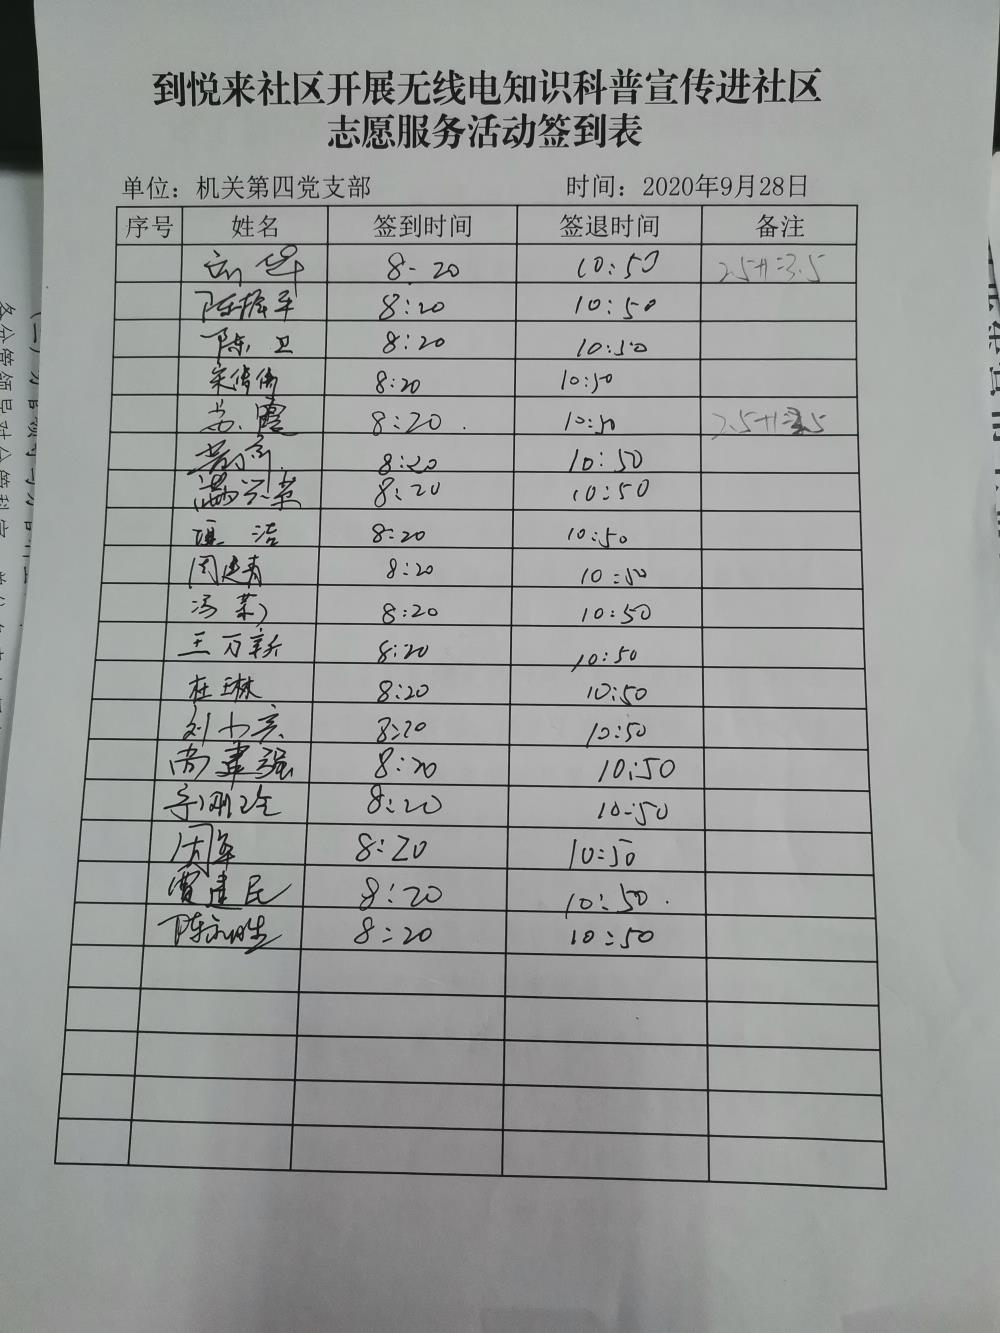 到悦来社区开展无线电知识科普宣传进社区
志愿服务活动签到表
单位：机关第四党支部 时间：2020年9月28日
序号 姓名 签到时间 签退时间 备注
8-20 10:50 2.5+1=3.5
陈振平 8:20 10:50
陈卫 8:20 10:50
宋倩倩 8:20 10:50
苏霞 8:20 10:50
8:20 10:50
满兴荣 8:20 10:50
洁 8:20 10:50
周建青 8:20 10:50
冯莉 8:20 10:50
王万新 8:20 10:50
杜琳 8:20 10:50
刘小亮 8:20 10:50
尚建强 8:20 10:50
8:20 10:50
周军 8:20 10:50
贾建民 8:20 10:50
陈永胜 8:20 10:50